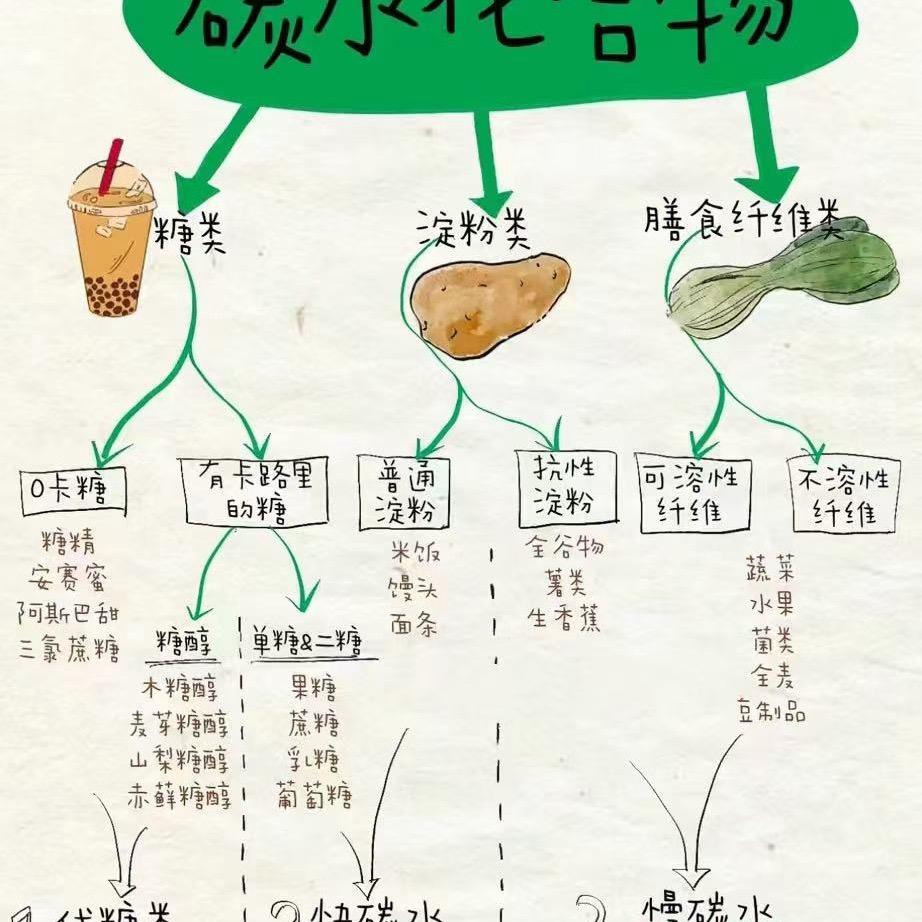 碳水化合物
糖类
淀粉类
膳食纤维类
0卡糖
有卡路里
的糖
普通
淀粉
抗性
淀粉
可溶性
纤维
不溶性
纤维
糖精
安赛蜜
阿斯巴甜
三氯蔗糖
糖醇
木糖醇
麦芽糖醇
山梨糖醇
赤藓糖醇
单糖&二糖
果糖
蔗糖
乳糖
葡萄糖
米饭
馒头
面条
全谷物
薯类
生香蕉
蔬菜
水果
菌类
全麦
豆制品
1 代糖类
2 快碳水
3 慢碳水